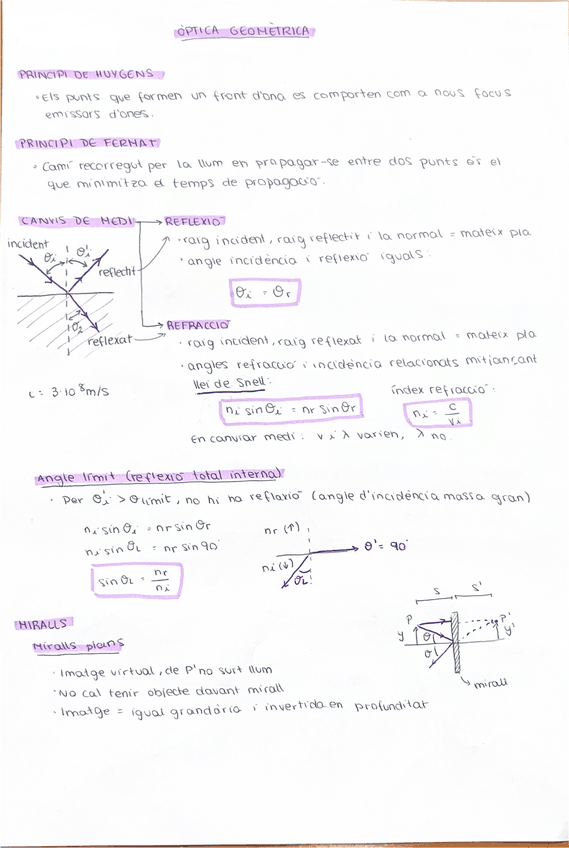 ÒPTICA GEOMÈTRICA
PRINCIPI DE HUYGENS
· Els punts que formen un front d'ona es comporten com a nous focus
emissors d'ones.
PRINCIPI DE FERMAT
· Camí recorregut per la llum en propagar-se entre dos punts és el
que minimitza el temps de propagació.
CANVIS DE MEDI → REFLEXIÓ
incident
θi θi'
reflectit
θ2
reflexat
· raig incident, raig reflectit i la normal = mateix pla
· angle incidència i reflexió iguals:
θi = θr
REFRACCIÓ
· raig incident, raig reflexat i la normal = mateix pla
· angles refracció i incidència relacionats mitjançant
llei de Snell:
índex refracció:
c = 3·10⁸ m/s
ni sin θi = nr sin θr
ni = c/vi
En canviar medi: v i λ varien, λ no.
Angle límit (reflexió total interna)
· Per θi' > θlímit, no hi ha reflaxió (angle d'incidència massa gran)
ni sin θi = nr sin θr
ni sin θL = nr sin 90°
sin θL = nr/ni
nr (↑)
ni (↓)
θ' = 90°
θL
MIRALLS
Miralls plans
· Imatge virtual, de P' no surt llum
· No cal tenir objecte davant mirall
· Imatge = igual grandària i invertida en profunditat
s s'
P P'
y θ y'
θ'
mirall